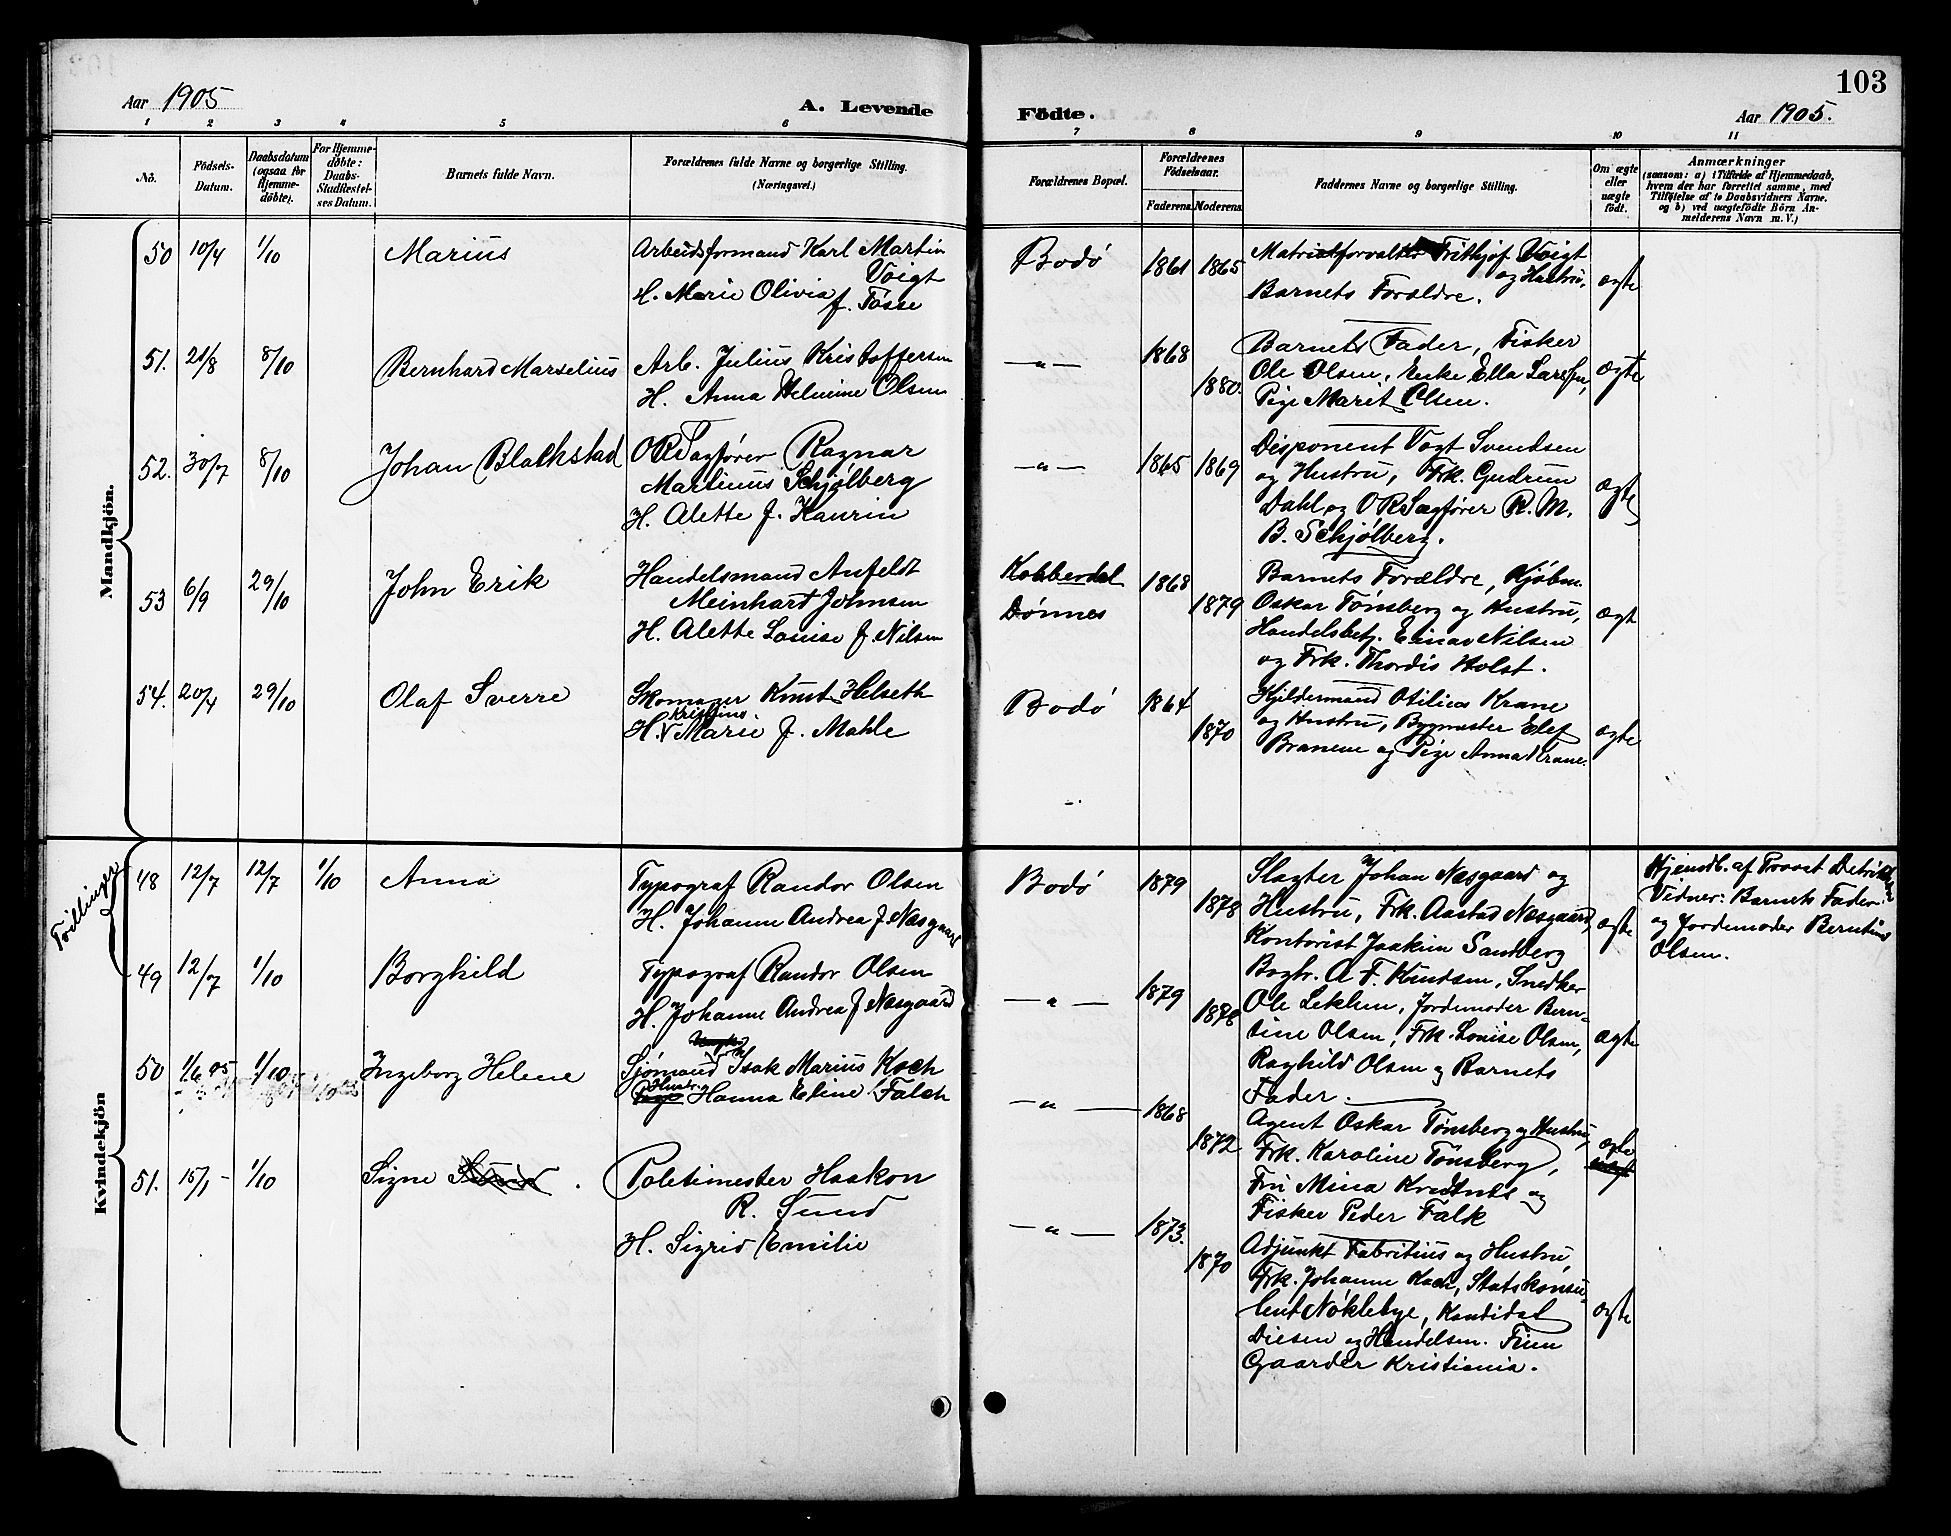 103
Aar 1905
A. Levende
Födte.
Aar 1905.
1 2 3 4 5 6 7 8 9 10 11
No.
Födsels-
Datum.
Daabsdatum
(ogsaa for
Hjemme-
döbte).
For Hjemme-
döbte:
Daabs-
Stadfæstel-
ses Datum.
Barnets fulde Navn.
Forældrenes fulde Navne og borgerlige Stilling.
(Næringsvei.)
Forældrenes Bopæl.
Forældrenes
Födselsaar.
Faderens. Moderens.
Faddernes Navne og borgerlige Stilling.
Om ægte
eller
uægte
født.
Anmærkninger
(saasom: a) i Tilfælde af Hjemmedaab,
hvem der har forrettet samme, med
Tilföielse af to Daabsvidners Navne.
og b) ved uægtefödte Börn An-
melderens Navn m. V.)
Mandkjön.
50 10/4 1/10 Marius
Arbeidsformand Karl Martin
Voigt
H. Marie Olivia f. Fosse
Bodö 1861 1865
Matrialforvalter Frithjof Voigt
og Hustru,
Barnets Forældre.
ægte
51. 21/8 8/10 Bernhard Marselius
Arb. Julius Kristoffersen
H. Anna Helmine Olsen
—„— 1868 1880.
Barnets Fader, Fisker
Ole Olsen, Enke Ella Larsen,
Pige Marit Olsen.
ægte
52. 30/7 8/10 Johan Blackstad
ORSagfører Ragnar
Martinus Schjølberg
H. Alette f. Haurin
—„— 1865 1869
Disponent Vogt Svendsen
og Hustru, Frk. Gudrun
Dahl og ORSagfører R. M.
B. Schjølberg.
ægte
53 6/9 29/10 John Erik
Handelsmand Anfeldt
Meinhart Johnsen
H. Alette Louise f. Nilsen
Kobberdal
Dønnes
1868 1879
Barnets Forældre, Kjøbm.
Oskar Tønsberg og Hustru,
Handelsbetj. Einar Nilsen
og Frk. Thordis Holst.
ægt
54. 20/4 29/10 Olaf Sverre
Skomager Knut Helseth
Kristine
H. Marie f. Mahle
Bodö 1864 1870
Kjeldermand Otilius Krane
og Hustru, Bygmester Elef
og Pige Anna Krane.
ægte
Kvindekjön
Tvillinger
48 12/7 12/7 1/10 Anna
Typograf Randor Olsen
H. Johanne Andrea f. Næsgaard
Bodö 1879 1878
Slagter Johan Næsgaard og
Hustru, Frk. Aastad Næsgaard,
Kontorist Joakim Sandberg
ægte
Hjemdb. af Provst
Vidner: Barnets Fader
og Jordemoder Berntine
Olsen.
49 12/7 1/10 Borghild
Typograf Randor Olsen
H. Johanne Andrea f Næsgaard
—„— 1879 1878
Bogtr. A F. Knudsen, Snedker
Ole Leklem, Jordemoder Bern-
tine Olsen, Frk. Louise Olsen,
Raghild Olsen og Barnets
Fader.
ægte
50 1/6 95 1/10 Ingeborg Helene
Sjömand Isak Marius Koch
Hustr.
Hanna Eline Falch
—„— 1868 1872
Agent Oskar Tønsberg og Hustru,
Frk. Karoline Tönsberg,
Fru Mina og
Fisker Peder Falk
ægte
51. 15/1 - 1/10 Signe Sund.
Politimester Haakon
R. Sund
H. Sigrid Emilie
—„— 1873. 1870
Adjunkt Fabritius og Hustru
Frk. Johanne Koch, Statskonsu-
lent Nöklebye, Kandidat
Diesen og Handelsm. Finn
Gaarder Kristiania.
ægte